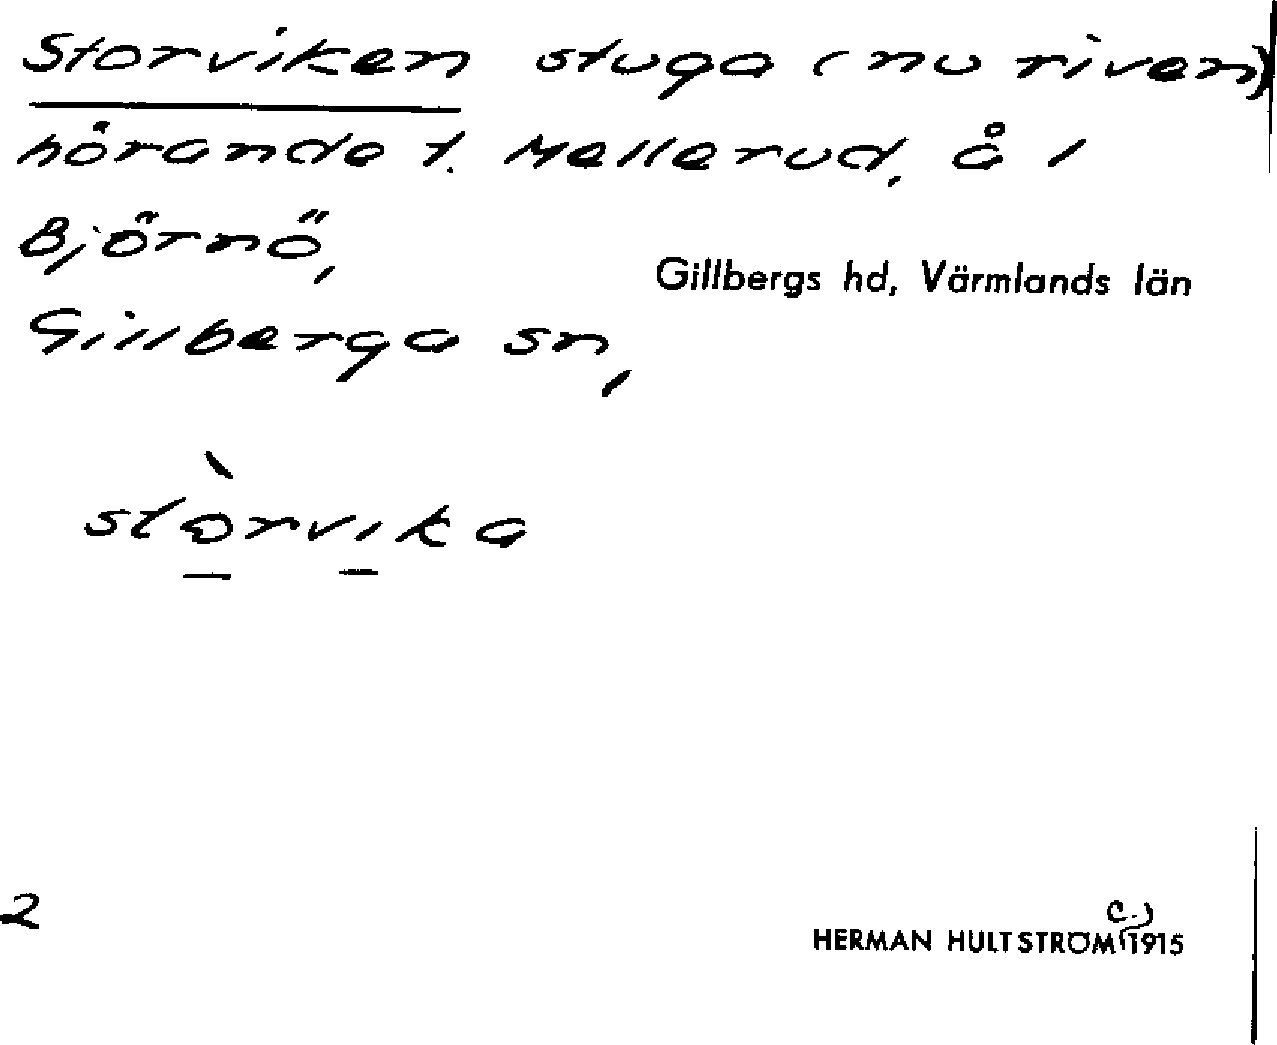 Storviken stuga (nu riven)
hörande t. Mellerud, å 1
Björnö,
Gillbergs hd, Värmlands län
Gillberga sn,
stòrvika
2
c.)
HERMAN HULTSTRÖM (1915